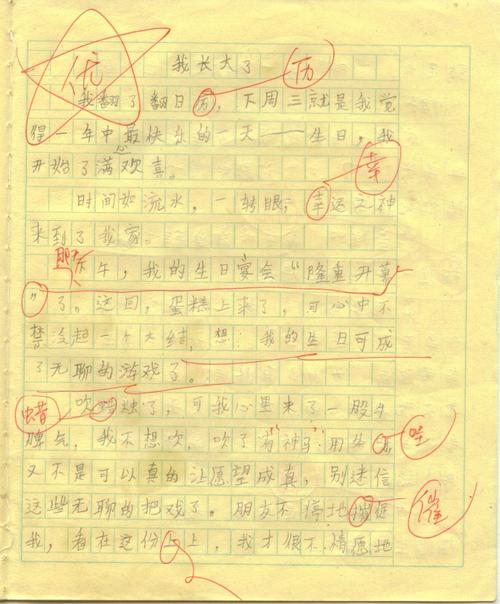 优
我长大了 历
我翻了翻日历,下周三就是我觉
得一年中最快乐的一天——生日,我
心
开始了满欢喜。
幸
时间如流水,一转眼,幸运之神
来到了我家。
那天
下午,我的生日宴会“隆重开幕
”了。这回,蛋糕上来了,可心中不
禁没起一个大结,想:我的生日可成
了无聊的游戏了。
蜡 吹蜡烛了,可我心里来了一股牛
脾气,我不想吹,吹了有神马用生
又不是可以真的让愿望成真,别迷信
这些无聊的把戏了。朋友不停地催
催
我,看在这份上上,我才很不情愿地